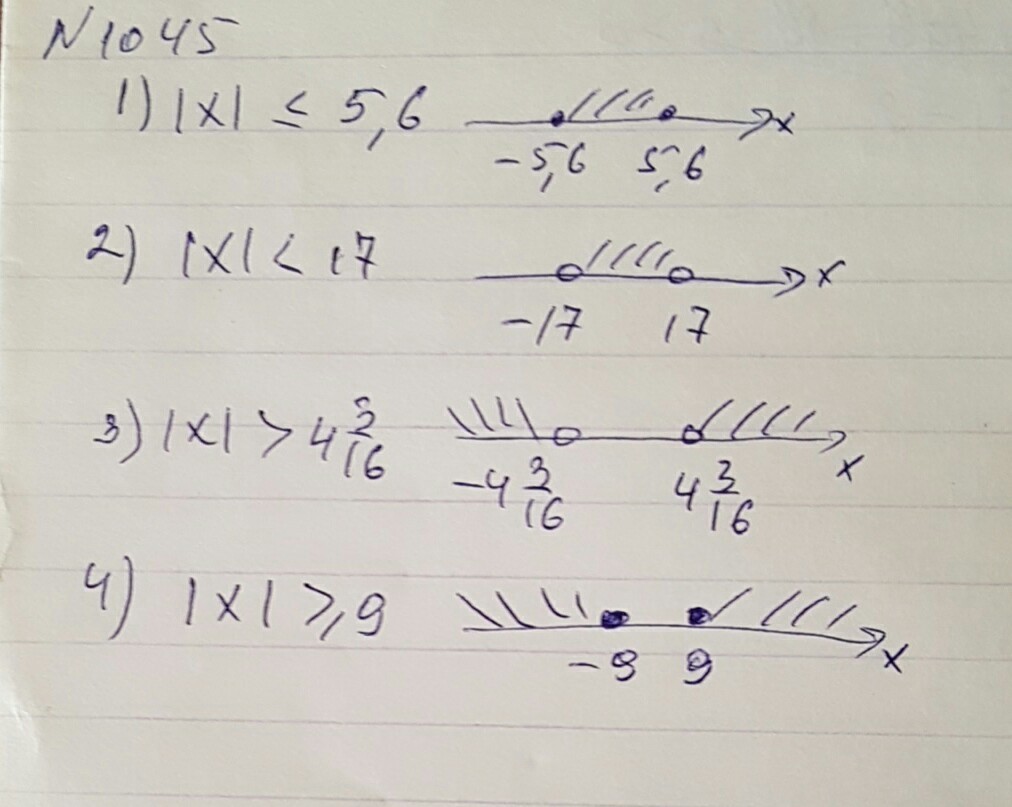 N 1045
1) |x| ≤ 5,6 x
-5,6 5,6
2) |x| < 17 x
-17 17
3) |x| > 4 3/16 x
-4 3/16 4 3/16
4) |x| ≥ 9 x
-9 9